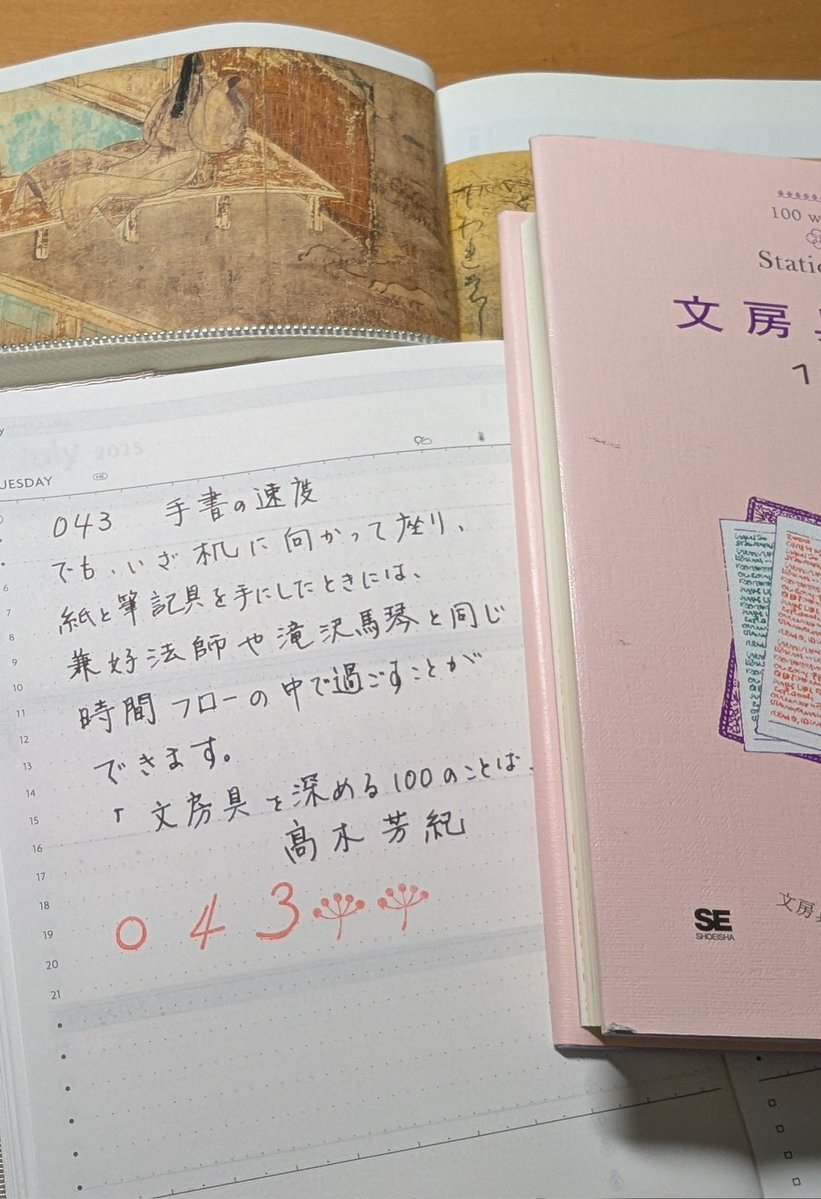 July 2025
UESDAY
043 手書の速度
でも、いざ机に向かって座り、
紙と筆記具を手にしたときには、
兼好法師や滝沢馬琴と同じ
時間フローの中で過ごすことが
できます。
「文房具を深める100のことば」
高木芳紀
043
6
7
8
9
10
11
12
13
14
15
16
17
18
19
20
21
100 w
Static
文房具
1
文房具
SE
SHOEISHA